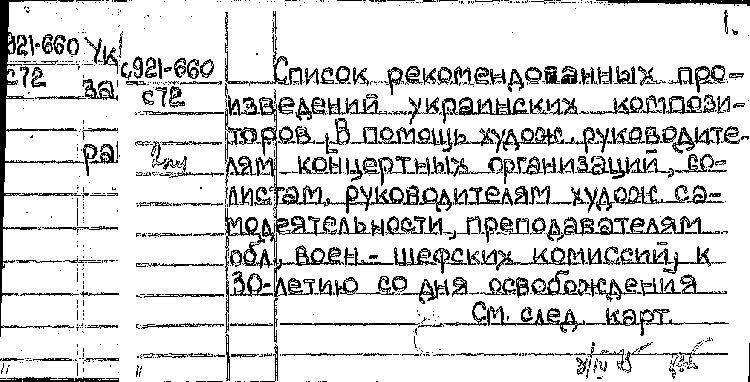 1.
с921-660
с72
921-660 Ук
с72 за
ра
Список рекомендованных про-
изведений украинских компози-
торов, В помощь худож. руководите-
лям концертных организаций, со-
листам, руководителям худож. са-
модеятельности, преподавателям
обл, воен.-шефских комиссий, к
30-летию со дня освобождения
См. след. карт.